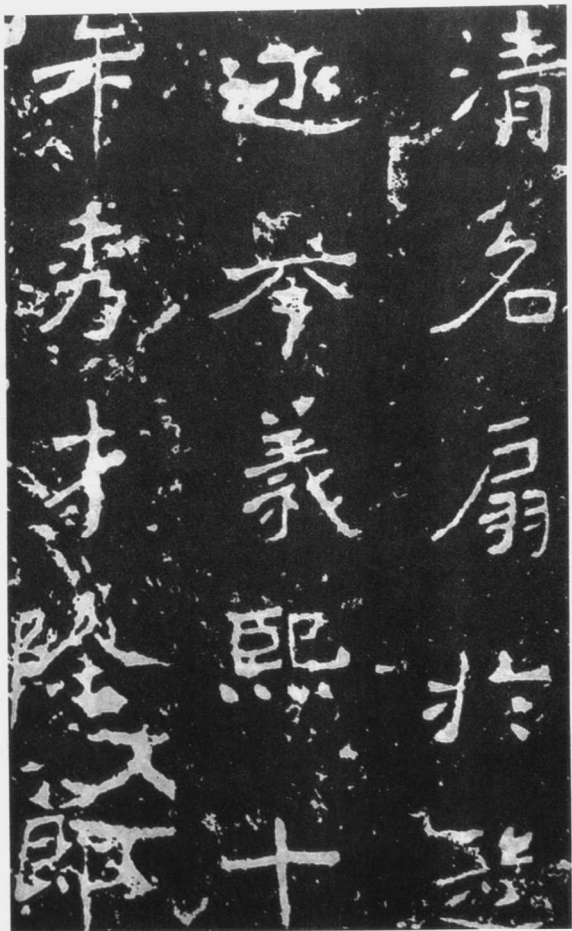 清名扇於遐
迩举義熙十
年秀才郎